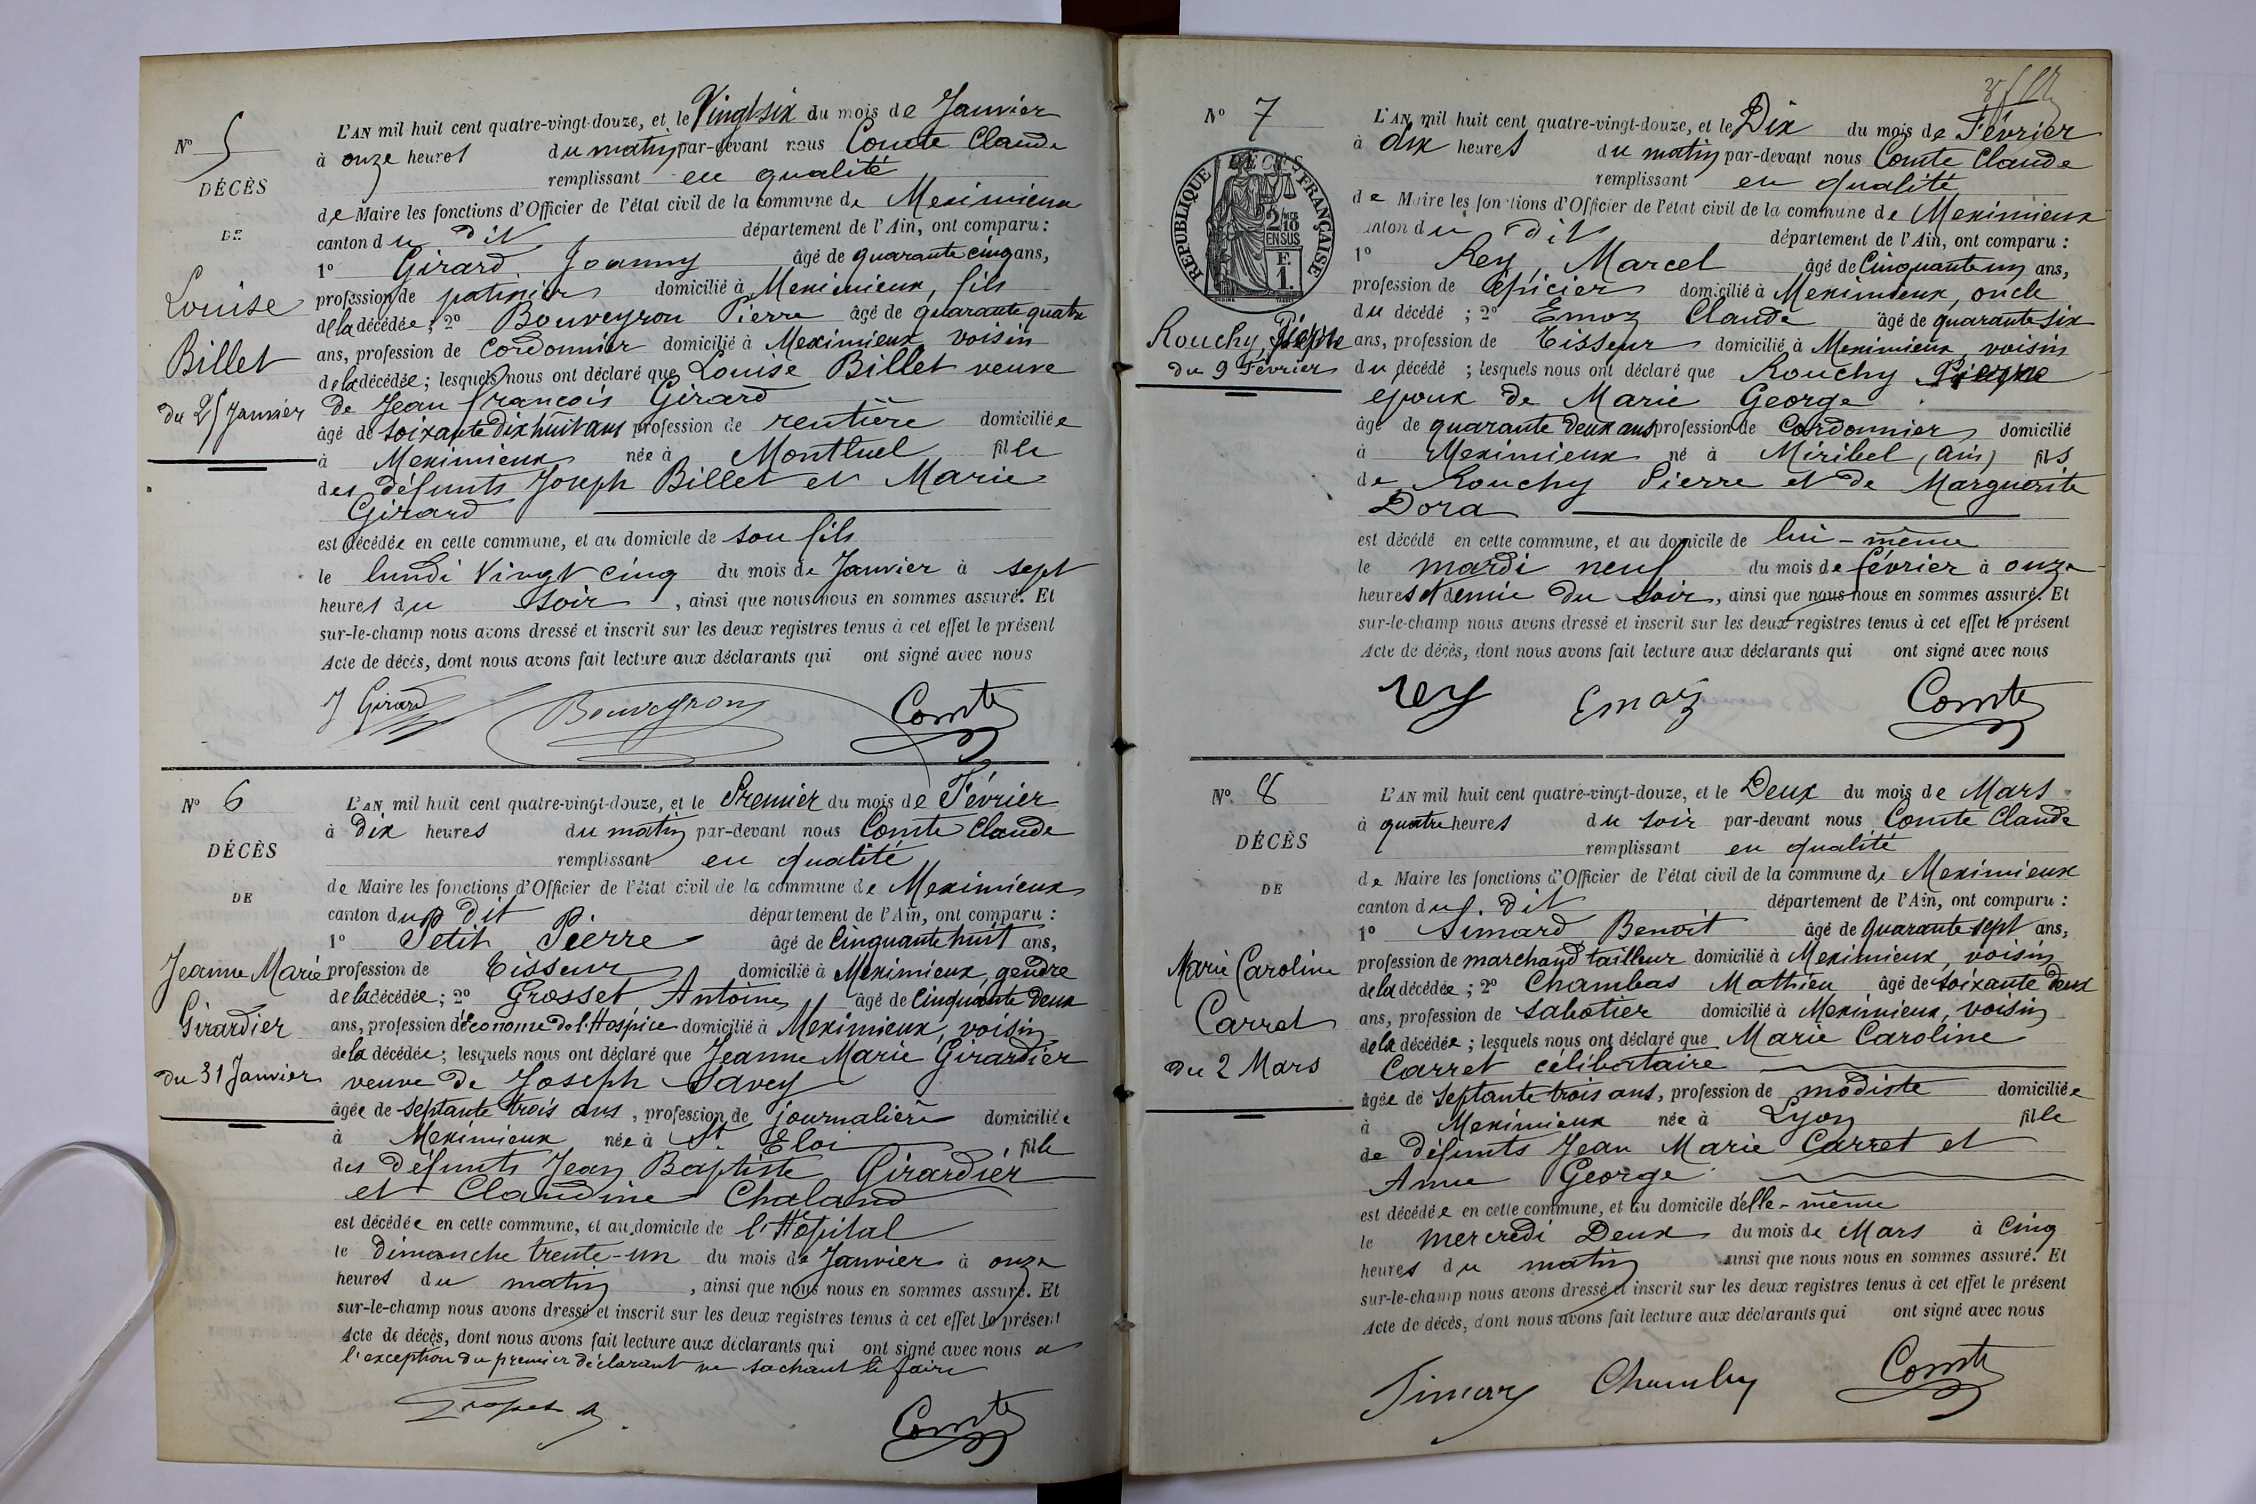 N° 5
DÉCÈS
DE
Louise
Billet
du 25 Janvier
L'AN mil huit cent quatre-vingt-douze, et le Vingt six du mois de Janvier
à onze heures du matin par-devant nous Comte Claude
remplissant en qualité
de Maire les fonctions d'Officier de l'état civil de la commune de Meximieux
canton du dit département de l'Ain, ont comparu :
1° Girard Joanny âgé de quarante cinq ans,
profession de domicilié à Meximieux, fils
de la décédée ; 2° Bouveyron Pierre âgé de quarante quatre
ans, profession de Cordonnier domicilié à Meximieux voisin
de la décédée ; lesquels nous ont déclaré que Louise Billet veuve
de Jean françois Girard
âgé de soixante dix huit ans profession de rentière domiciliée
à Meximieux née à Montluel fille
des défunts Joseph Billet et Marie
Girard
est décédée en cette commune, et au domicile de son fils
le lundi Vingt cinq du mois de Janvier à sept
heures du soir, ainsi que nous nous en sommes assuré. Et
sur-le-champ nous avons dressé et inscrit sur les deux registres tenus à cet effet le présent
Acte de décès, dont nous avons fait lecture aux déclarants qui ont signé avec nous
J Girard Bouveyron Comte
N° 6
DÉCÈS
DE
Jeanne Marie
Girardier
du 31 Janvier
L'AN mil huit cent quatre-vingt-douze, et le Premier du mois de Février
à Dix heures du matin par-devant nous Comte Claude
remplissant en qualité
de Maire les fonctions d'Officier de l'état civil de la commune de Meximieux
canton du dit département de l'Ain, ont comparu :
1° Petit Pierre âgé de Cinquante huit ans,
profession de Tisseur domicilié à Meximieux, gendre
de la décédée ; 2° Grosset Antoine âgé de Cinquante Deux
ans, profession d'Econome de l'Hospice domicilié à Meximieux, voisin
de la décédée ; lesquels nous ont déclaré que Jeanne Marie Girardier
veuve de Joseph Savey
âgée de septante trois ans, profession de journalière domiciliée
à Meximieux née à St. Eloi fille
des défunts Jean Baptiste Girardier
et Claudine Chaland
est décédée en cette commune, et au domicile de l'Hôpital
le Dimanche trente-un du mois de Janvier à onze
heures du matin, ainsi que nous nous en sommes assuré. Et
sur-le-champ nous avons dressé et inscrit sur les deux registres tenus à cet effet le présent
Acte de décès, dont nous avons fait lecture aux déclarants qui ont signé avec nous à
l'exception du premier déclarant ne sachant le faire
Comte
N° 7
DÉCÈS
RÉPUBLIQUE FRANÇAISE
2/10 EN SUS
F.
1.
Rouchy Pierre
du 9 Février
L'AN mil huit cent quatre-vingt-douze, et le Dix du mois de Février
à dix heures du matin par-devant nous Comte Claude
remplissant en qualité
de Maire les fonctions d'Officier de l'état civil de la commune de Meximieux
canton du dit département de l'Ain, ont comparu :
1° Rey, Marcel âgé de Cinquante un ans,
profession de Epicier domicilié à Meximieux, oncle
du décédé ; 2° Emoz Claude âgé de quarante six
ans, profession de Tisseur domicilié à Meximieux, voisin
du décédé ; lesquels nous ont déclaré que Rouchy Pierre
époux de Marie George
âgé de quarante deux ans profession de Cordonnier domicilié
à Meximieux né à Miribel (Ain) fils
de Rouchy Pierre et de Marguerite
Dora
est décédé en cette commune, et au domicile de lui-même
le mardi neuf du mois de février à onze
heures et demie du soir, ainsi que nous nous en sommes assuré. Et
sur-le-champ nous avons dressé et inscrit sur les deux registres tenus à cet effet le présent
Acte de décès, dont nous avons fait lecture aux déclarants qui ont signé avec nous
rey Emoz Comte
N° 8
DÉCÈS
DE
Marie Caroline
Carret
du 2 Mars
L'AN mil huit cent quatre-vingt-douze, et le Deux du mois de Mars
à quatre heures du soir par-devant nous Comte Claude
remplissant en qualité
de Maire les fonctions d'Officier de l'état civil de la commune de Meximieux
canton du dit département de l'Ain, ont comparu :
1° Simard Benoit âgé de quarante sept ans,
profession de marchand tailleur domicilié à Meximieux, voisin
de la décédée ; 2° Chambas Mathieu âgé de soixante deux
ans, profession de sabotier domicilié à Meximieux, voisin
de la décédée ; lesquels nous ont déclaré que Marie Caroline
Carret célibataire
âgée de septante trois ans, profession de modiste domiciliée
à Meximieux née à Lyon fille
de défunts Jean Marie Carret et
Anne George
est décédée en cette commune, et au domicile d'elle-même
le mercredi Deux du mois de Mars à Cinq
heures du matin ainsi que nous nous en sommes assuré. Et
sur-le-champ nous avons dressé et inscrit sur les deux registres tenus à cet effet le présent
Acte de décès, dont nous avons fait lecture aux déclarants qui ont signé avec nous
Comte